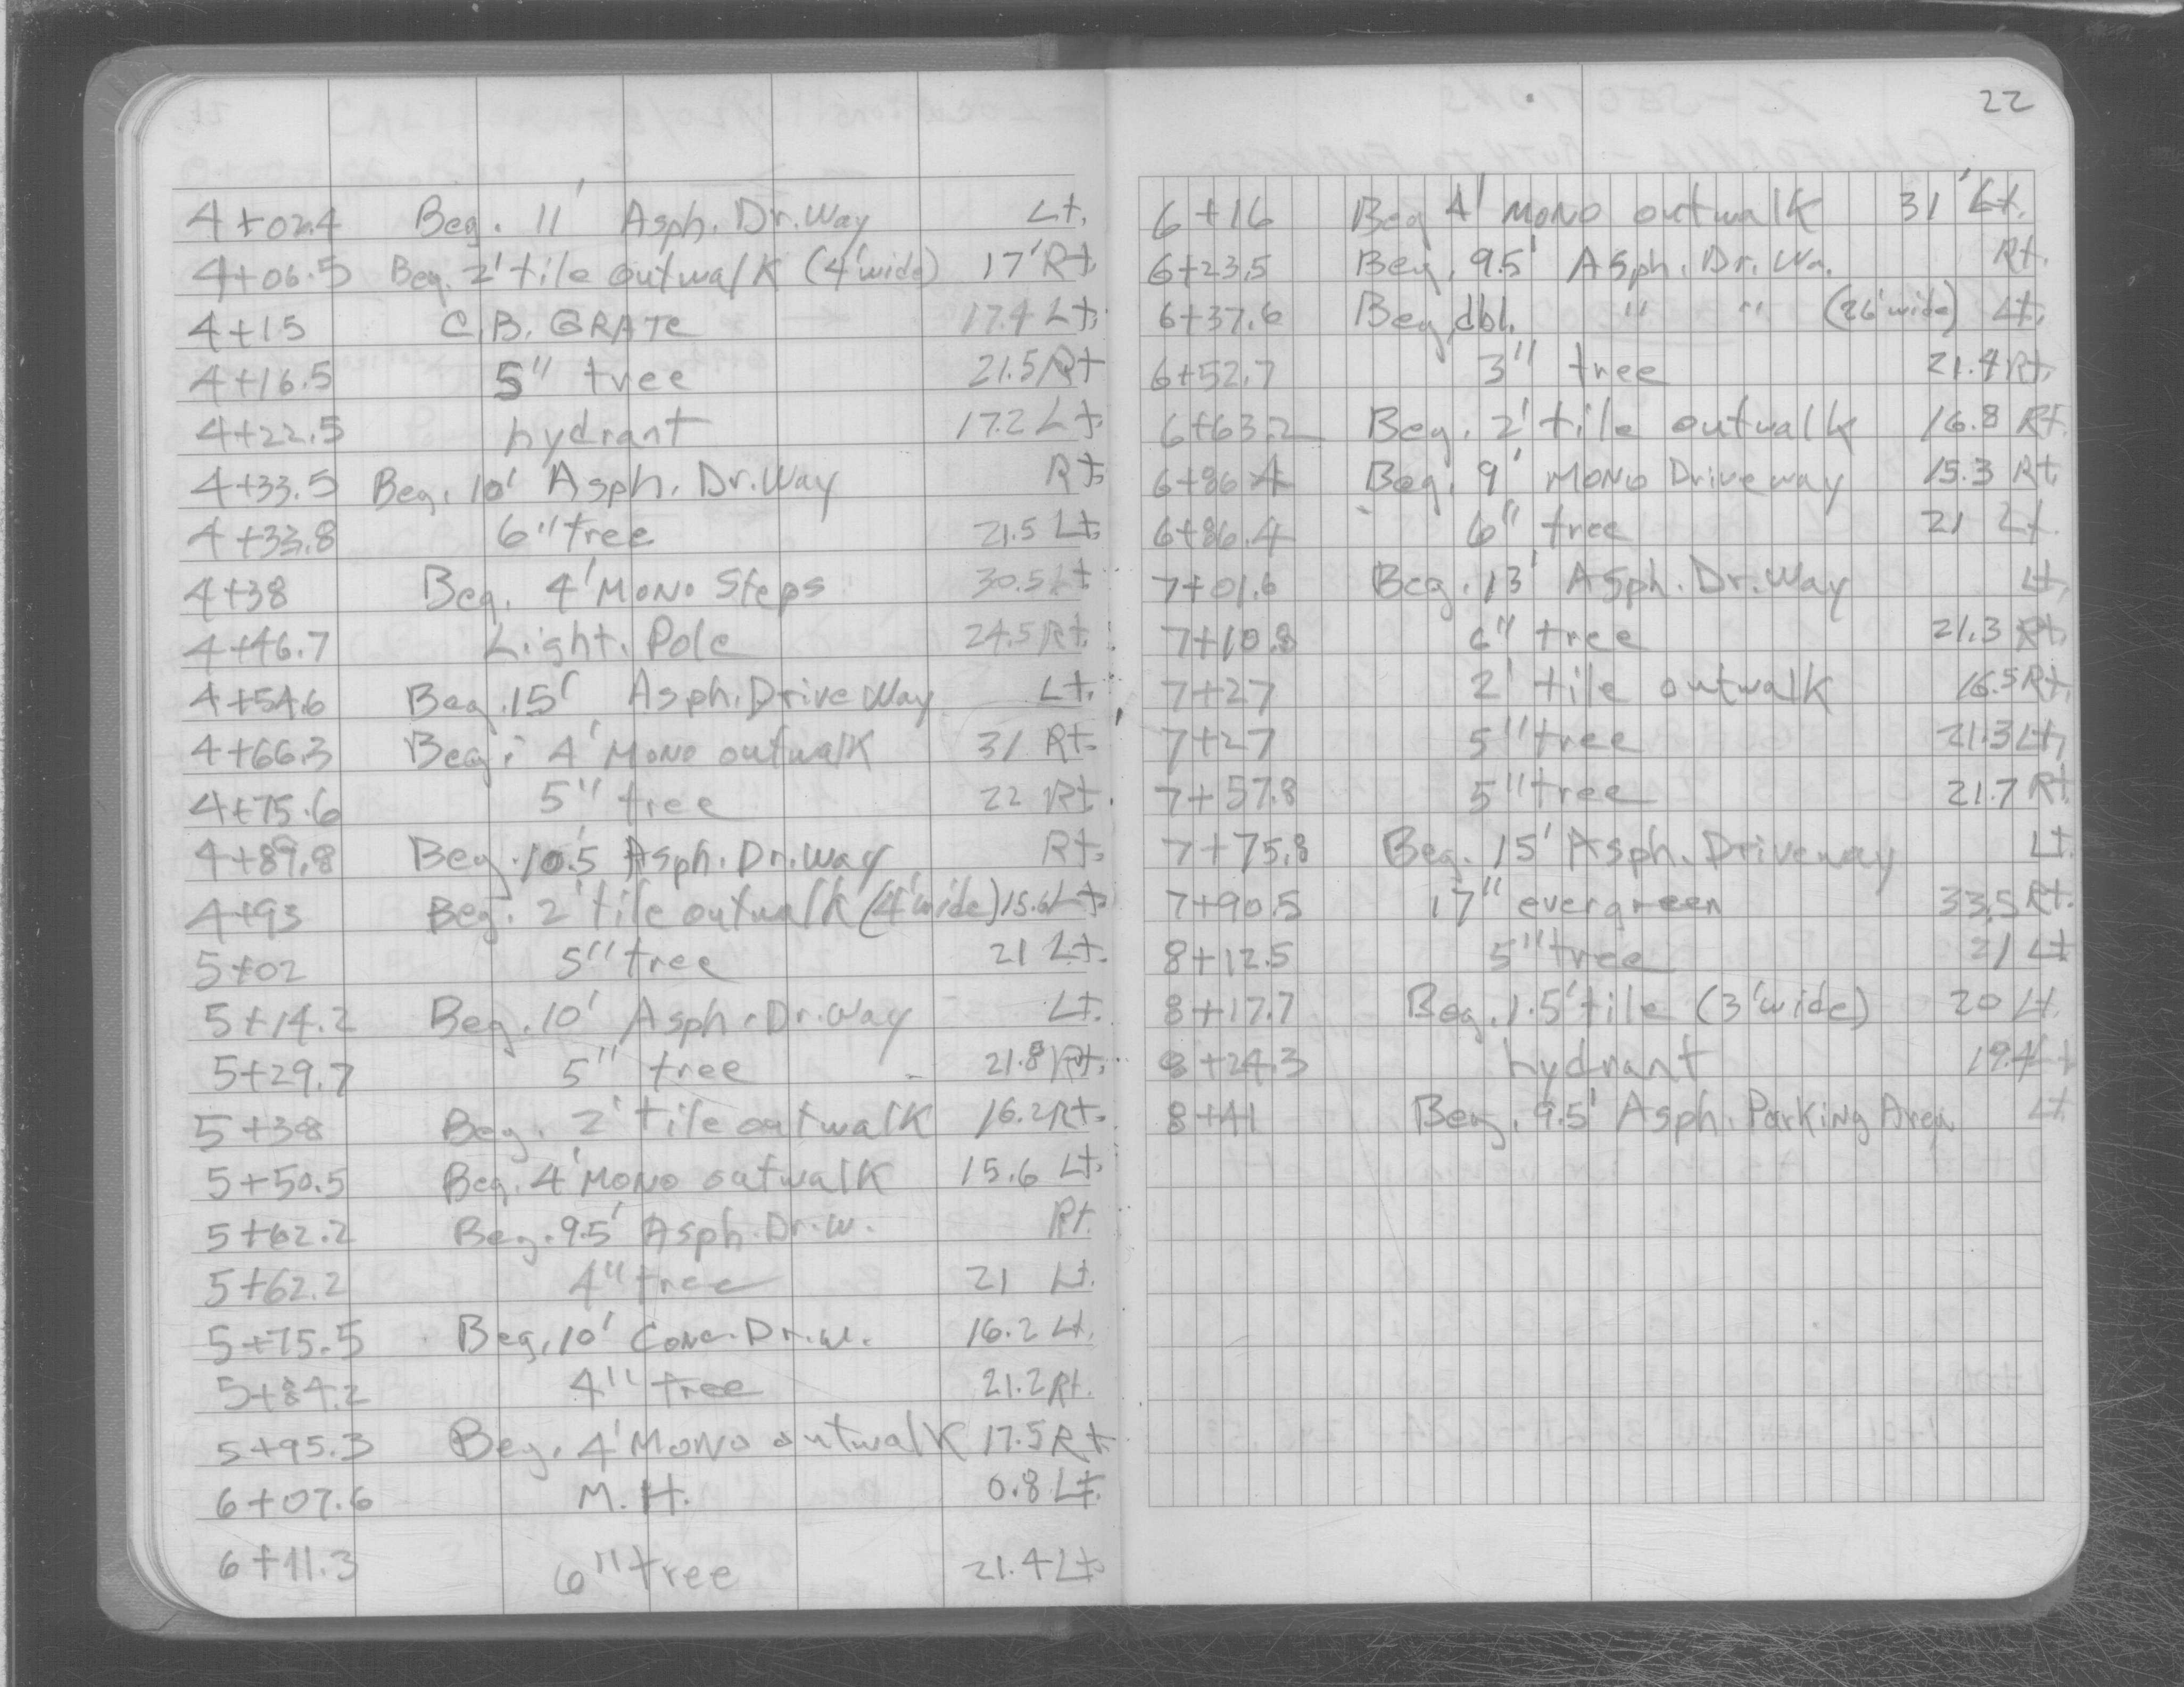 4+02.4 Beg. 11' Asph. Dr.Way Lt.
4+06.5 Beg. 2' tile outwalk (4' wide) 17' Rt.
4+15 C.B. GRATE 17.4 Lt.
4+16.5 5" tree 21.5 Rt
4+22.5 hydrant 17.2 Lt.
4+33.5 Beg. 10' Asph. Dr.Way Rt.
4+33.8 6" tree 21.5 Lt.
4+38 Beg. 4' Mono Steps 30.5 Lt
4+46.7 Light. Pole 24.5 Rt.
4+54.6 Beg. 15' Asph. Drive Way Lt.
4+66.3 Beg. 4' Mono outwalk 31 Rt.
4+75.6 5" tree 22 Rt.
4+89.8 Beg. 10.5' Asph. Dr.Way Rt.
4+93 Beg. 2' tile outwalk (4' wide) 15.6 Lt.
5+02 5" tree 21 Lt.
5+14.2 Beg. 10' Asph. Dr.Way Lt.
5+29.7 5" tree 21.8 Rt.
5+38 Beg. 2' tile outwalk 16.2 Rt.
5+50.5 Beg. 4' Mono outwalk 15.6 Lt.
5+62.2 Beg. 9.5' Asph. Dr.W. Rt.
5+62.2 4" tree 21 Lt.
5+75.5 Beg. 10' Conc. Dr.W. 16.2 Lt.
5+84.2 4" tree 21.2 Rt.
5+95.3 Beg. 4' Mono outwalk 17.5 Rt.
6+07.6 M.H. 0.8 Lt.
6+11.3 6" tree 21.4 Lt.
22
6+16 Beg 4' Mono outwalk 31' Lt.
6+23.5 Beg. 9.5' Asph. Dr. Wa. Rt.
6+37.6 Beg dbl. " " (26' wide) Lt.
6+52.7 3" tree 21.4 Rt.
6+63.2 Beg. 2' tile outwalk 16.8 Rt.
6+86.4 Beg. 9' Mono Driveway 15.3 Rt.
6+86.4 6" tree 21 Lt.
7+01.6 Beg. 13' Asph. Dr.Way Lt.
7+10.8 6" tree 21.3 Rt.
7+27 2' tile outwalk 16.5 Rt.
7+27 5" tree 21.3 Lt.
7+57.8 5" tree 21.7 Rt
7+75.8 Beg. 15' Asph. Driveway Lt.
7+90.5 17" evergreen 33.5 Rt.
8+12.5 5" tree 21 Lt
8+17.7 Beg. 1.5' tile (3' wide) 20 Lt.
8+24.3 hydrant
8+41 Beg. 9.5' Asph. Parking Area Lt